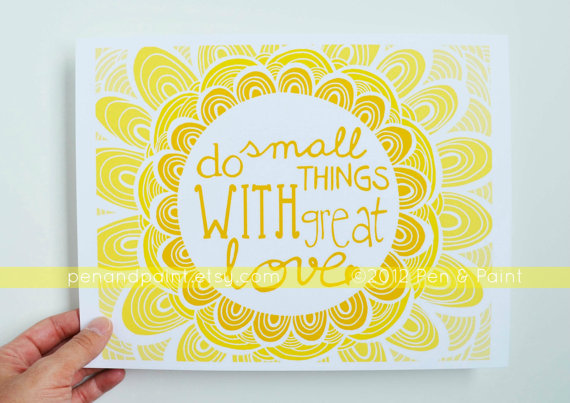 do small
THINGS
WITH great
love
penandpaint.etsy.com ©2012 Pen & Paint